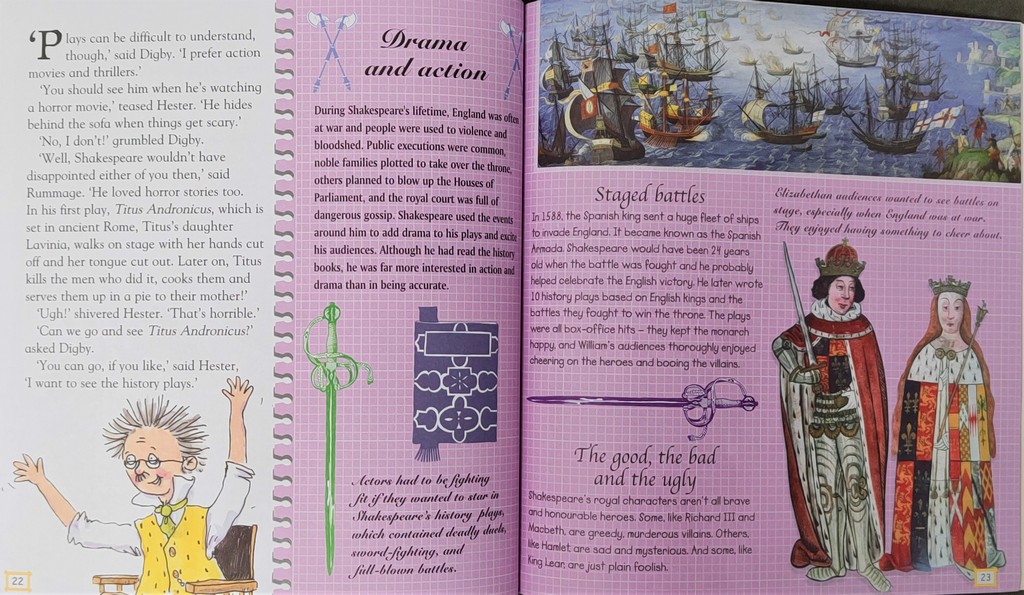 'Plays can be difficult to understand,
though,' said Digby. 'I prefer action
movies and thrillers.'
'You should see him when he's watching
a horror movie,' teased Hester. 'He hides
behind the sofa when things get scary.'
'No, I don't!' grumbled Digby.
'Well, Shakespeare wouldn't have
disappointed either of you then,' said
Rummage. 'He loved horror stories too.
In his first play, Titus Andronicus, which is
set in ancient Rome, Titus's daughter
Lavinia, walks on stage with her hands cut
off and her tongue cut out. Later on, Titus
kills the men who did it, cooks them and
serves them up in a pie to their mother!'
'Ugh!' shivered Hester. 'That's horrible.'
'Can we go and see Titus Andronicus?'
asked Digby.
'You can go, if you like,' said Hester,
'I want to see the history plays.'
22
Drama
and action
During Shakespeare's lifetime, England was often
at war and people were used to violence and
bloodshed. Public executions were common,
noble families plotted to take over the throne,
others planned to blow up the Houses of
Parliament, and the royal court was full of
dangerous gossip. Shakespeare used the events
around him to add drama to his plays and excite
his audiences. Although he had read the history
books, he was far more interested in action and
drama than in being accurate.
Actors had to be fighting
fit if they wanted to star in
Shakespeare's history plays,
which contained deadly duels,
sword-fighting, and
full-blown battles.
Staged battles
In 1588, the Spanish king sent a huge fleet of ships
to invade England. It became known as the Spanish
Armada. Shakespeare would have been 24 years
old when the battle was fought and he probably
helped celebrate the English victory. He later wrote
10 history plays based on English kings and the
battles they fought to win the throne. The plays
were all box-office hits – they kept the monarch
happy, and William's audiences thoroughly enjoyed
cheering on the heroes and booing the villains.
Elizabethan audiences wanted to see battles on
stage, especially when England was at war.
They enjoyed having something to cheer about.
The good, the bad
and the ugly
Shakespeare's royal characters aren't all brave
and honourable heroes. Some, like Richard III and
Macbeth, are greedy, murderous villains. Others,
like Hamlet, are sad and mysterious. And some, like
King Lear, are just plain foolish.
23